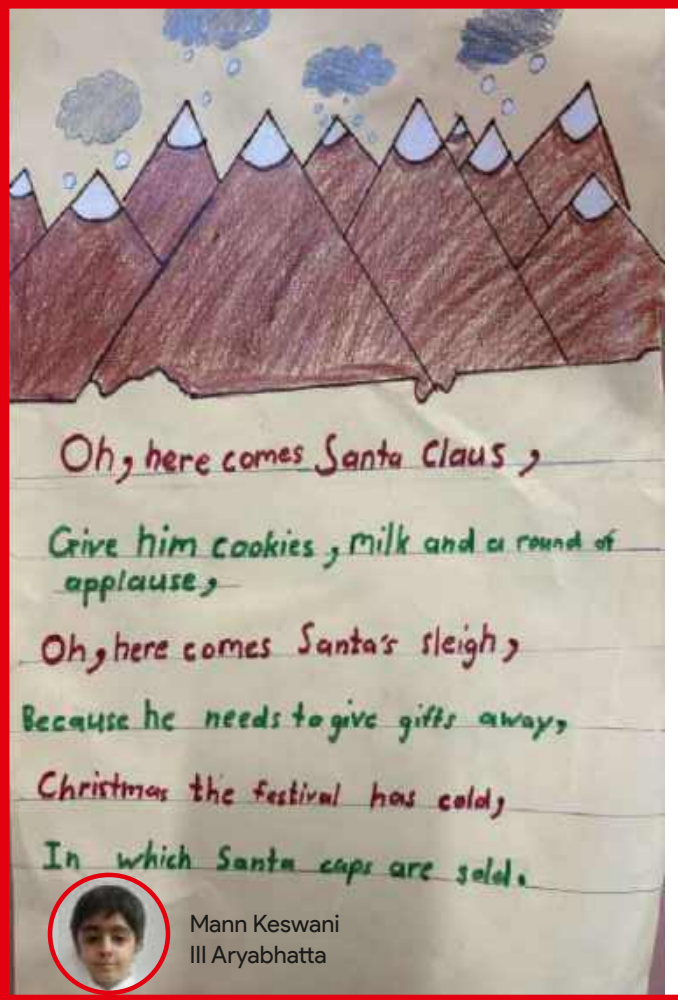 Oh, here comes Santa Claus,
Give him cookies, milk and a round of
applause,
Oh, here comes Santa's sleigh,
Because he needs to give gifts away,
Christmas the festival has cold,
In which Santa caps are sold.
Mann Keswani
III Aryabhatta